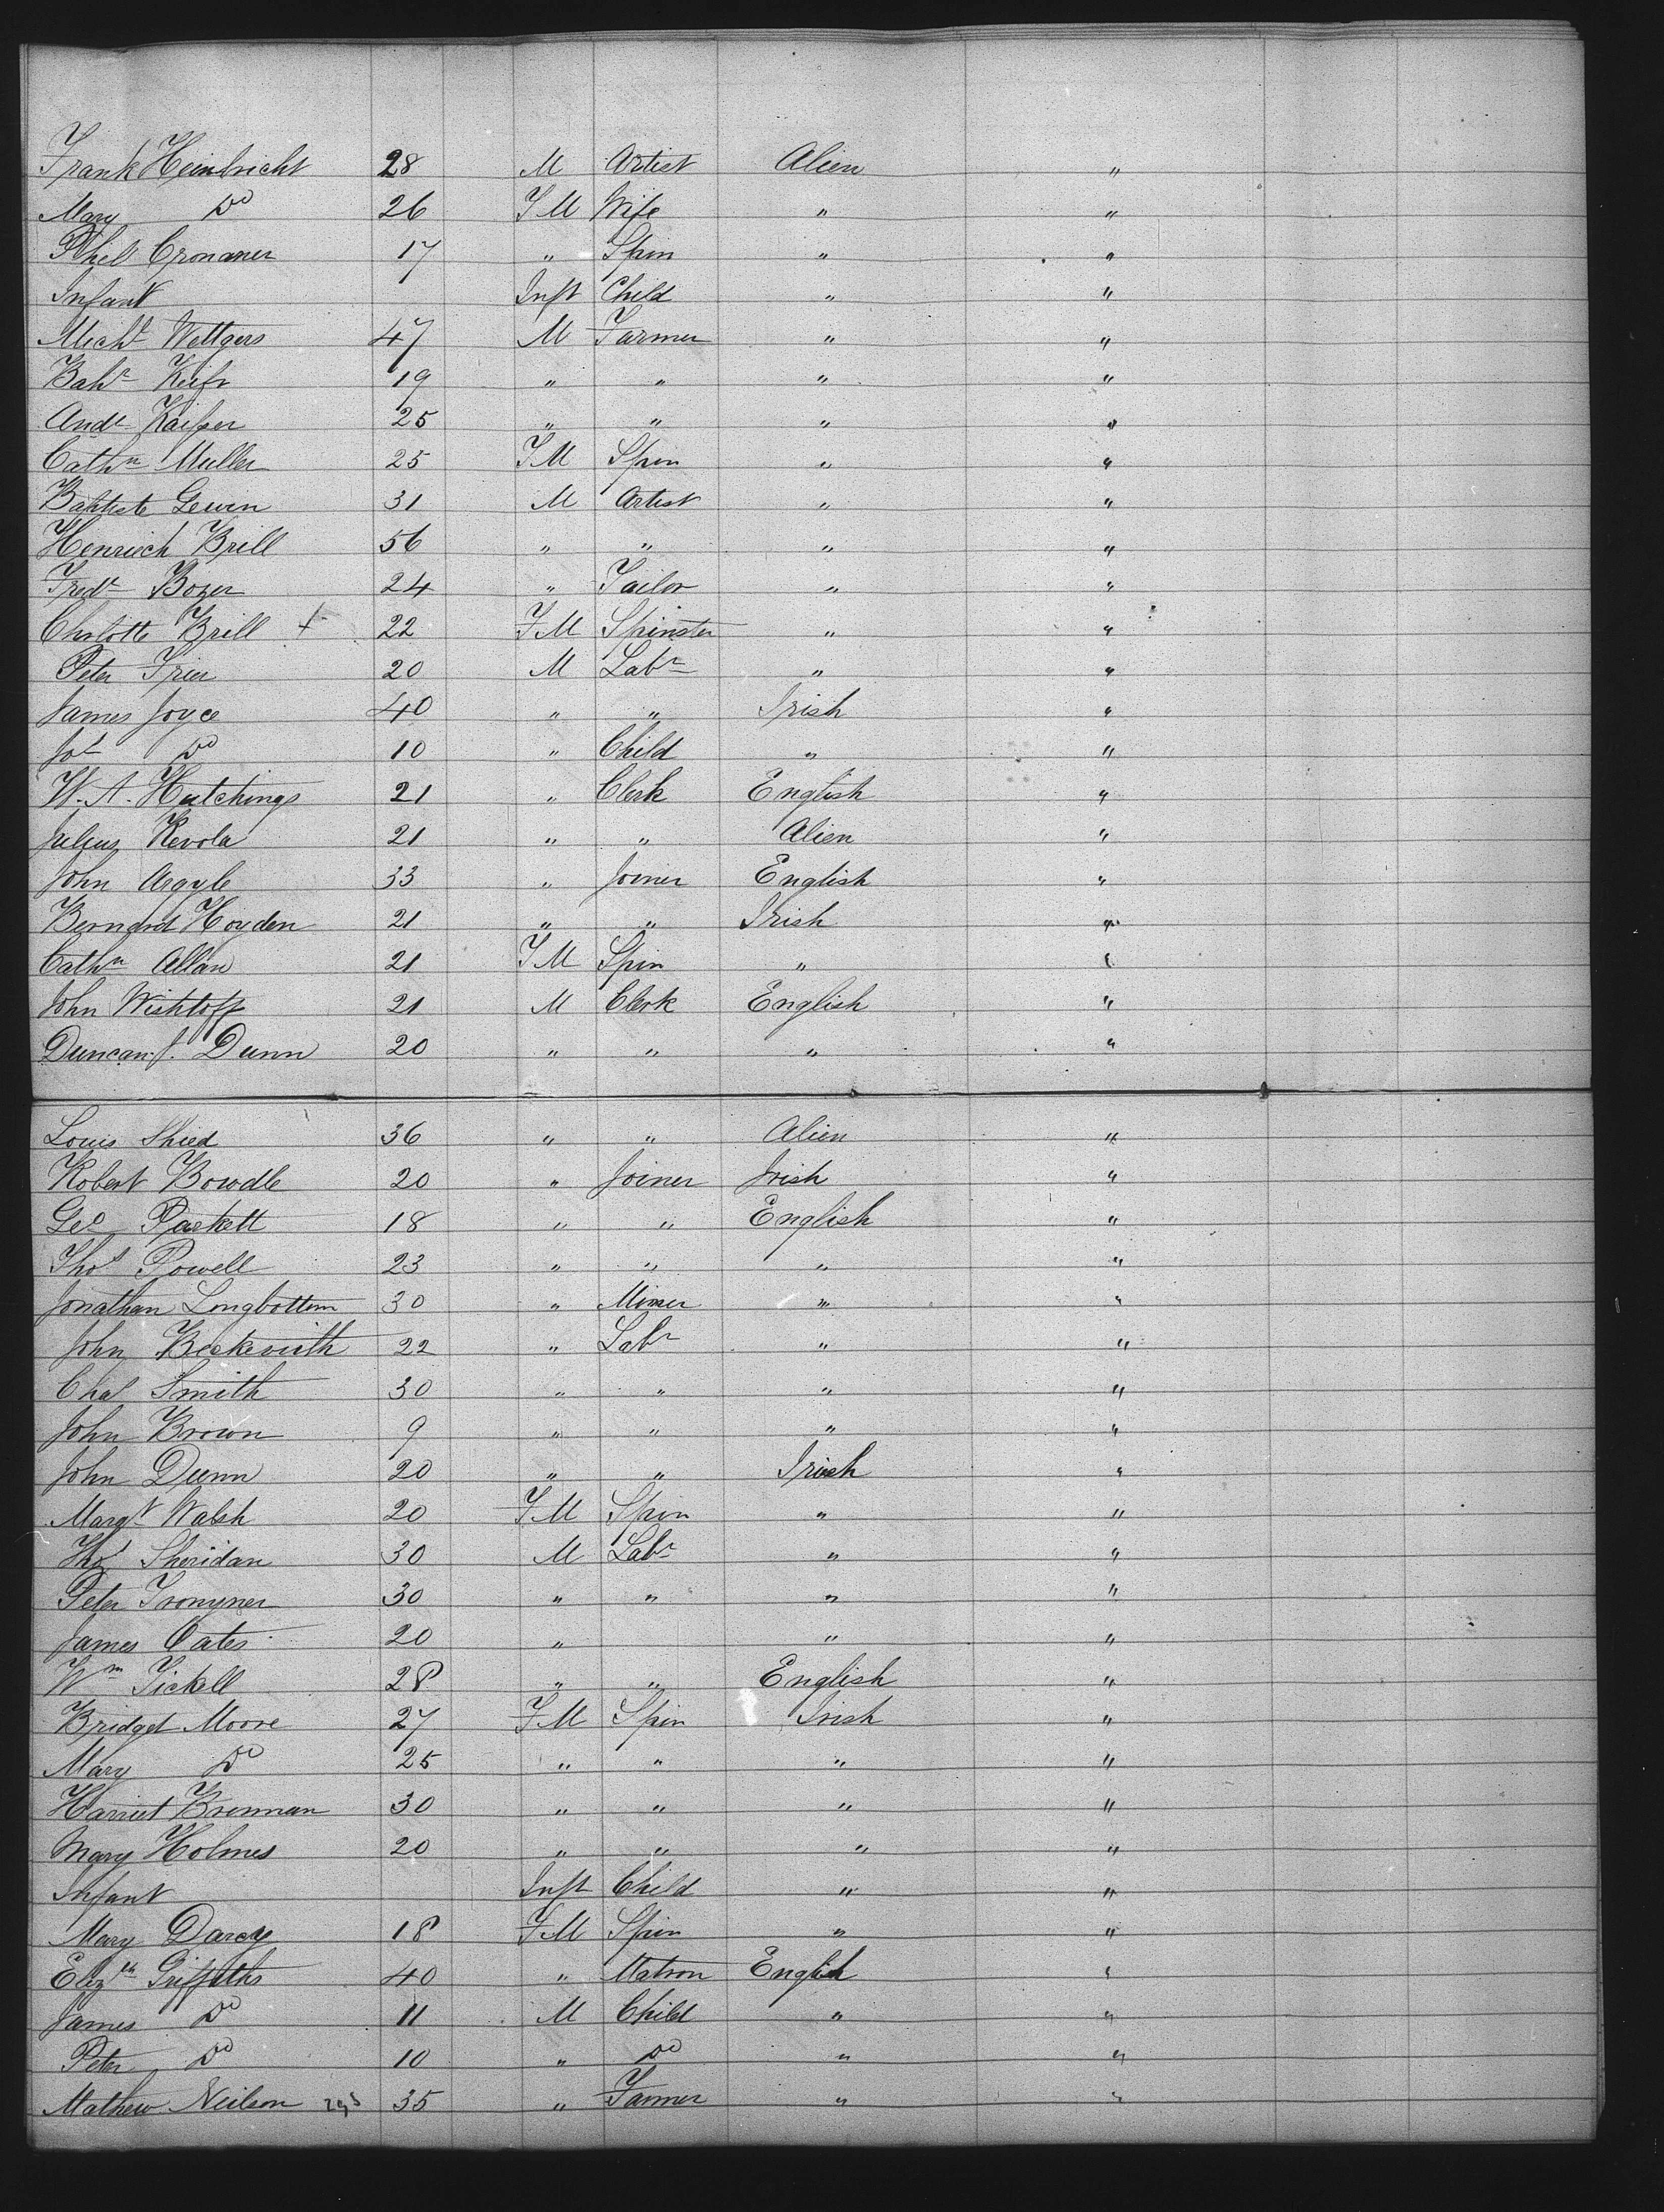 Frank Heinbricht 28 M Artist Alien "
Mary Do 26 FM Wife " "
Phil Cronaner 17 " Spin " "
Infant Inft Child " "
Michl Wettgers 47 M Farmer " "
Baht Keifr 19 " " " "
Andr Kaiser 25 " " " "
Cathn Muller 25 FM Spin " "
Baptiste Lewen 31 M Artist " "
Henrich Brill 56 " " " "
Fredr Bozer 24 " Tailor " "
Chrlotte Brill + 22 FM Spinster " "
Peter Frier 20 M Labr " "
James Joyce 40 " " Irish "
Jos Do 10 " Child " "
W. A. Hutchings 21 " Clerk English "
Julius Revola 21 " " Alien "
John Argyle 33 " Joiner English "
Bernard Hoyden 21 " " Irish "
Cathn Allan 21 FM Spin " "
John Wishtoff 21 M Clerk English "
Duncan J. Dunn 20 " " " "
Louis Shied 36 " " Alien "
Robert Bowdle 20 " Joiner Irish "
Geo Paskett 18 " " English "
Thos Powell 23 " " " "
Jonathan Longbottom 30 " Miner " "
John Beckewith 22 " Labr " "
Chas Smith 30 " " " "
John Brown 9 " " " "
John Dunn 20 " " Irish "
Margt Walsh 20 FM Spin " "
Thos Sheridan 30 M Labr " "
Peter Tromyner 30 " " " "
James Oates 20 " " "
Wm Tickell 28 " " English "
Bridget Moore 27 FM Spin Irish "
Mary Do 25 " " " "
Harriet Brennan 30 " " " "
Mary Holmes 20 " " " "
Infant Inft Child " "
Mary Darcy 18 FM Spin " "
Elizth Griffiths 40 " Matron English "
James Do 11 M Child " "
Peter Do 10 " Do " "
Mathew Neilson 35 " Farmer " "